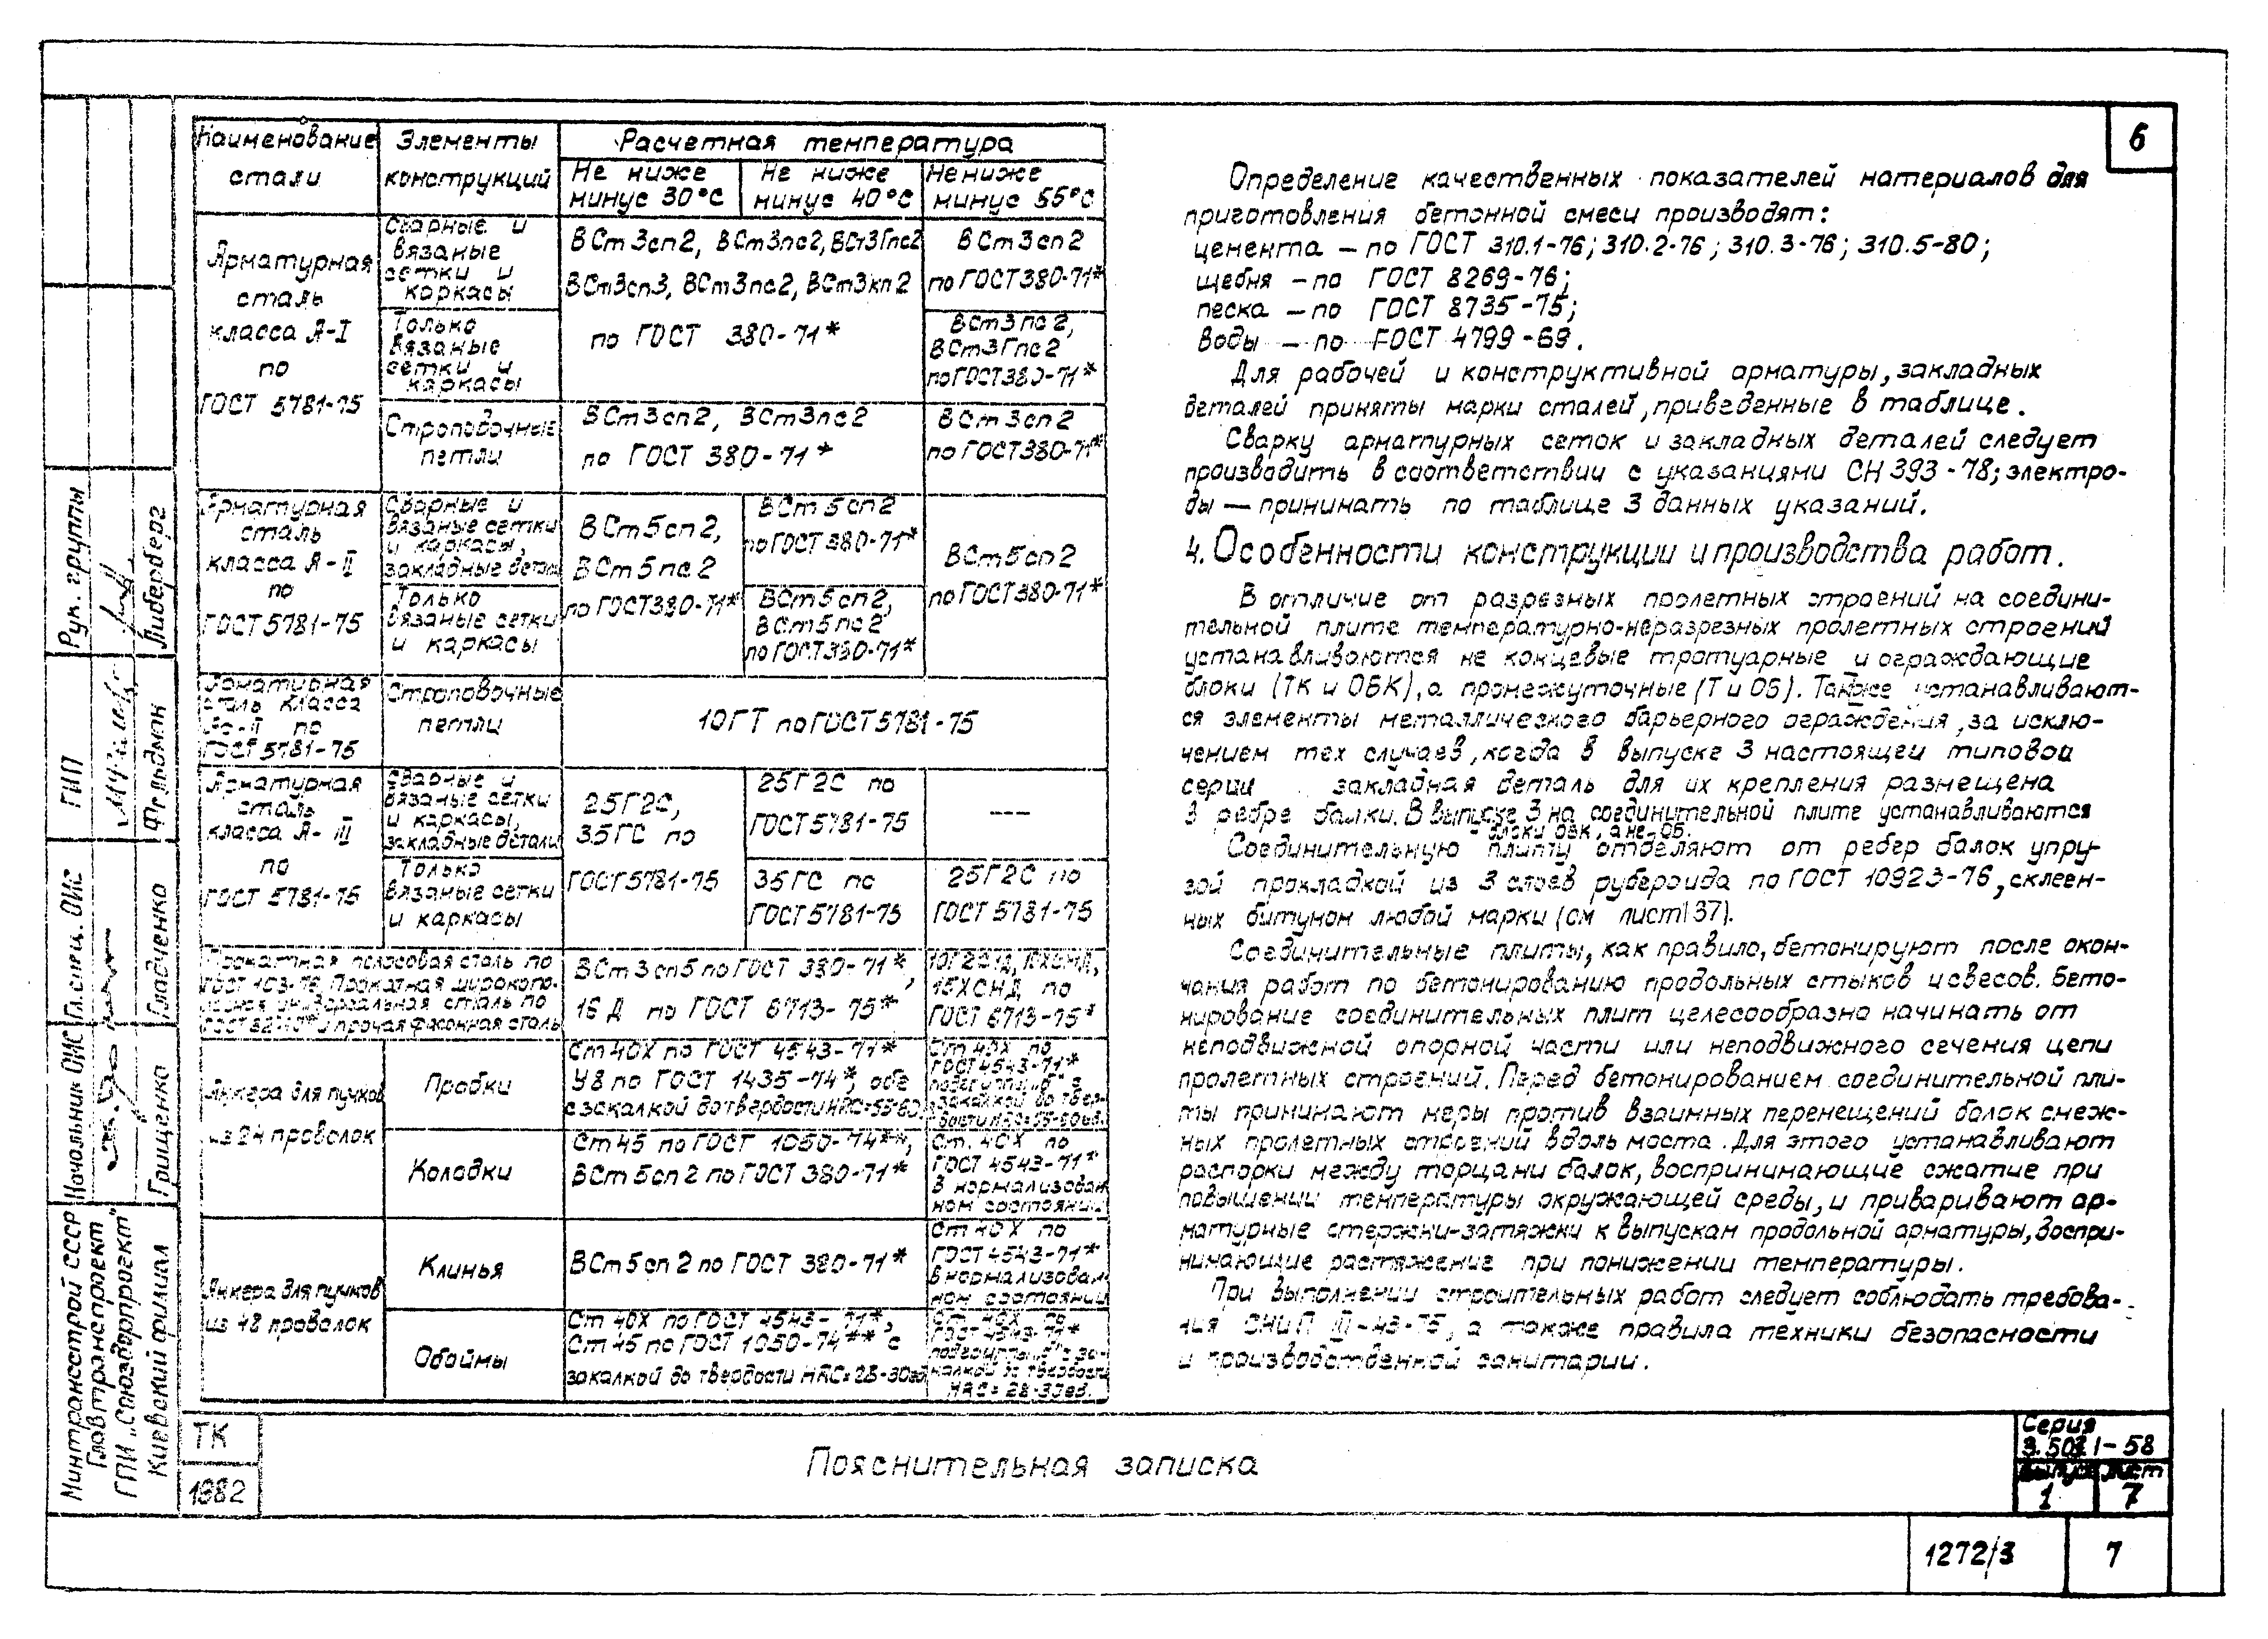 6
Наименование стали
Элементы конструкций
Расчетная температура
Не ниже минус 30°С
Не ниже минус 40°С
Не ниже минус 55°С
Арматурная
сталь
класса А-I
по
ГОСТ 5781-75
Сварные и
вязаные
сетки и
каркасы
ВСт3сп2, ВСт3пс2, ВСт3Гпс2
ВСт3сп3, ВСт3пс2, ВСт3кп2
по ГОСТ 380-71*
ВСт3сп2
по ГОСТ380-71*
Только
вязаные
сетки и
каркасы
ВСт3пс2,
ВСт3Гпс2
по ГОСТ380-71*
Строповочные
петли
ВСт3сп2, ВСт3пс2
по ГОСТ 380-71*
ВСт3сп2
по ГОСТ380-71*
Арматурная
сталь
класса А-II
по
ГОСТ5781-75
Сварные и
вязаные сетки
и каркасы,
закладные детали
ВСт5сп2,
ВСт5пс2
по ГОСТ380-71*
ВСт5сп2
по ГОСТ 380-71*
ВСт5сп2
по ГОСТ380-71*
Только
вязаные сетки
и каркасы
ВСт5сп2,
ВСт5пс2
по ГОСТ380-71*
Арматурная
сталь класса
Ас-II по
ГОСТ 5781-75
Строповочные
петли
10ГТ по ГОСТ 5781-75
Арматурная
сталь
класса А-III
по
ГОСТ 5781-75
Сварные и
вязаные сетки
и каркасы,
закладные детали
25Г2С,
35ГС по
ГОСТ5781-75
25Г2С по
ГОСТ5781-75
---
Только
вязаные сетки
и каркасы
35ГС по
ГОСТ5781-75
25Г2С по
ГОСТ 5781-75
Прокатная полосовая сталь по
ГОСТ 103-76, Прокатная широкопо-
лосная универсальная сталь по
ГОСТ 82-70* и прочая фасонная сталь
ВСт3сп5 по ГОСТ 380-71*,
16Д по ГОСТ 6713-75*
10Г2С1Д, 10ХСНД,
15ХСНД по
ГОСТ 6713-75*
Анкера для пучков
из 24 проволок
Пробки
Ст40Х по ГОСТ 4543-71*
У8 по ГОСТ 1435-74*, обе
с закалкой до твердости HRC=55-60
Ст 40Х по
ГОСТ4543-71*
закалкой до твер-
дости HRC=55-60ед.
Колодки
Ст45 по ГОСТ 1050-74**,
ВСт5сп2 по ГОСТ 380-71*
Ст. 40Х по
ГОСТ 4543-71*
в нормализован
ном состоянии
Анкера для пучков
из 48 проволок
Клинья
ВСт5сп2 по ГОСТ 380-71*
Ст 40Х по
ГОСТ 4543-71*
в нормализован
ном состоянии
Обоймы
Ст 40Х по ГОСТ 4543-71*,
Ст 45 по ГОСТ 1050-74** с
закалкой до твердости HRC=28-30ед.
Ст 40Х по
ГОСТ 4543-71*
калкой до твердости
HRC=28-30ед.
Определение качественных показателей материалов для
приготовления бетонной смеси производят:
цемента – по ГОСТ 310.1-76; 310.2-76; 310.3-76; 310.5-80;
щебня – по ГОСТ 8269-76;
песка – по ГОСТ 8735-75;
воды – по ГОСТ 4799-69.
Для рабочей и конструктивной арматуры, закладных
деталей приняты марки сталей, приведенные в таблице.
Сварку арматурных сеток и закладных деталей следует
производить в соответствии с указаниями СН 393-78; электро-
ды – принимать по таблице 3 данных указаний.
4. Особенности конструкции и производства работ.
В отличие от разрезных пролетных строений на соедини-
тельной плите температурно-неразрезных пролетных строений
устанавливаются не концевые тротуарные и ограждающие
блоки (ТК и ОБК), а промежуточные (Т и ОБ). Также устанавливают-
ся элементы металлического барьерного ограждения, за исклю-
чением тех случаев, когда в выпуске 3 настоящей типовой
серии закладная деталь для их крепления размещена
в ребре балки. В выпуске 3 на соединительной плите устанавливаются
блоки ОБК, а не ОБ.
Соединительную плиту отделяют от ребер балок упру-
гой прокладкой из 3 слоев рубероида по ГОСТ 10923-76, склеен-
ных битумом любой марки (см лист 37).
Соединительные плиты, как правило, бетонируют после окон-
чания работ по бетонированию продольных стыков и свесов. Бето-
нирование соединительных плит целесообразно начинать от
неподвижной опорной части или неподвижного сечения цепи
пролетных строений. Перед бетонированием соединительной пли-
ты принимают меры против взаимных перемещений балок смеж-
ных пролетных строений вдоль моста. Для этого устанавливают
распорки между торцами балок, воспринимающие сжатие при
повышении температуры окружающей среды, и приваривают ар-
матурные стержни-затяжки к выпускам продольной арматуры, воспри-
нимающие растяжение при понижении температуры.
При выполнении строительных работ следует соблюдать требова-
ния СНиП III-43-75, а также правила техники безопасности
и производственной санитарии.
Рук. группы
Либерберг
ГИП
Фельдман
Гл. спец. ОИС
Гладченко
Начальник ОИС
Грищенко
Минтрансстрой СССР
Главтранспроект
ГПИ „Союздорпроект"
Киевский филиал
ТК
1982
Пояснительная записка
Серия
3.503.1-58
Выпуск
Лист
1
7
1272/3
7